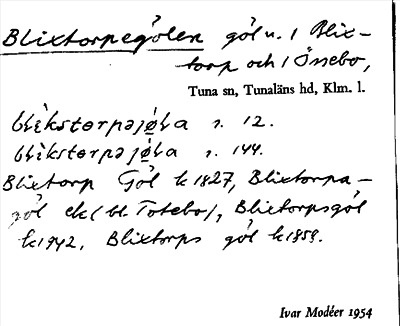 Blixtorpegölen göl n. i Blix-
torp och i Örsebo,
Tuna sn, Tunaläns hd, Klm. l.
blìkstorpəjø̱la s. 12.
blìkstorpəjø̱la s. 144.
Blixtorp Göl k 1827, Blixtorpa-
göl ek (bl Totebo), Blixtorpsgöl
k 1942, Blixtorps göl k 1859.
Ivar Modéer 1954